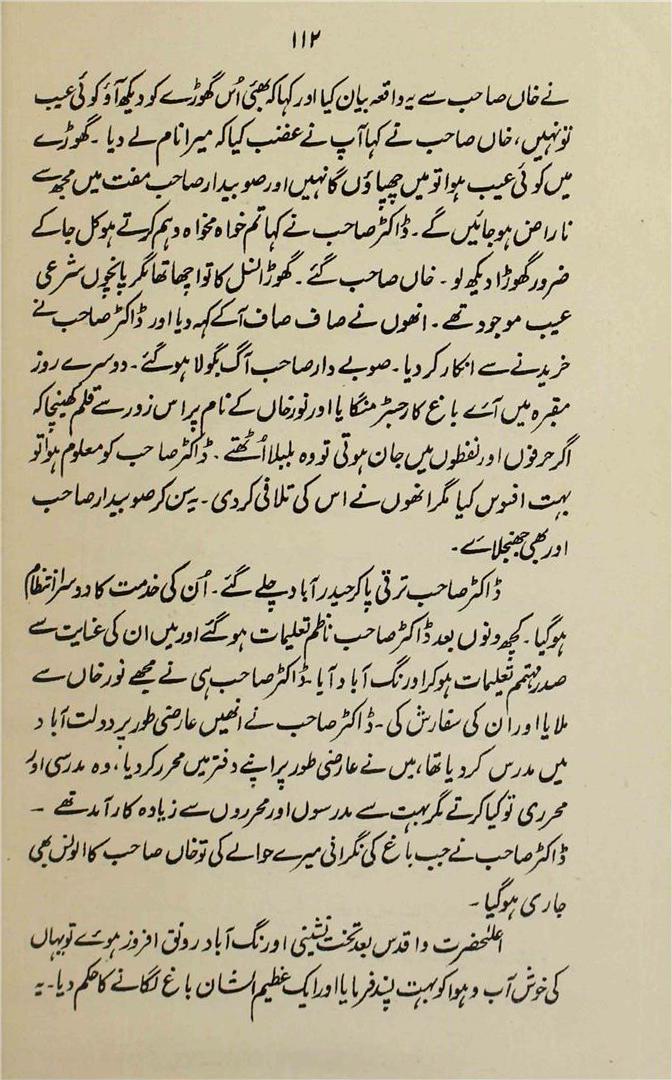 ۱۱۲
نے خاں صاحب سے یہ واقعہ بیان کیا اور کہا کہ بھئی اُس گھوڑے کو دیکھ آؤ کوئی عیب
تو نہیں، خاں صاحب نے کہا آپ نے غضب کیا کہ میرا نام لے دیا ۔ گھوڑے
میں کوئی عیب ہوا تو میں چھپاؤں گا نہیں اور صوبیدار صاحب مفت میں مجھ سے
ناراض ہو جائیں گے ۔ ڈاکٹر صاحب نے کہا تم خواہ مخواہ وہم کرتے ہو کل جا کے
ضرور گھوڑا دیکھ لو ۔ خاں صاحب گئے ۔ گھوڑا نسل کا تو اچھا تھا مگر پانچوں شرعی
عیب موجود تھے ۔ انھوں نے صاف صاف آ کے کہہ دیا اور ڈاکٹر صاحب نے
خریدنے سے انکار کر دیا ۔ صوبے دار صاحب آگ بگولا ہو گئے ۔ دوسرے روز
مقبرہ میں آئے باغ کا رجسٹر منگایا اور نور خاں کے نام پر اس زور سے قلم کھینچا کہ
اگر حرفوں اور لفظوں میں جان ہوتی تو وہ بلبلا اُٹھتے ۔ ڈاکٹر صاحب کو معلوم ہوا تو
بہت افسوس کیا مگر انھوں نے اس کی تلافی کر دی ۔ یہ سن کر صوبیدار صاحب
اور بھی جھنجلائے ۔
ڈاکٹر صاحب ترقی پا کر حیدرآباد چلے گئے ۔ اُن کی خدمت کا دوسرا انتظام
ہو گیا ۔ کچھ دنوں بعد ڈاکٹر صاحب ناظم تعلیمات ہو گئے اور میں ان کی عنایت سے
صدر مہتمم تعلیمات ہو کر اورنگ آباد آیا ۔ ڈاکٹر صاحب ہی نے مجھے نور خاں سے
ملایا اور ان کی سفارش کی ۔ ڈاکٹر صاحب نے انھیں عارضی طور پر دولت آباد
میں مدرس کر دیا تھا، میں نے عارضی طور پر اپنے دفتر میں محرر کر دیا، وہ مدرسی اور
محرری تو کیا کرتے مگر بہت سے مدرسوں اور محرروں سے زیادہ کارآمد تھے ۔
ڈاکٹر صاحب نے جب باغ کی نگرانی میرے حوالے کی تو خاں صاحب کا الونس بھی
جاری ہو گیا ۔
اعلٰحضرت و اقدس بعد تخت نشینی اورنگ آباد رونق افروز ہوئے تو یہاں
کی خوش آب و ہوا کو بہت پسند فرمایا اور ایک عظیم الشان باغ لگانے کا حکم دیا ۔ یہ